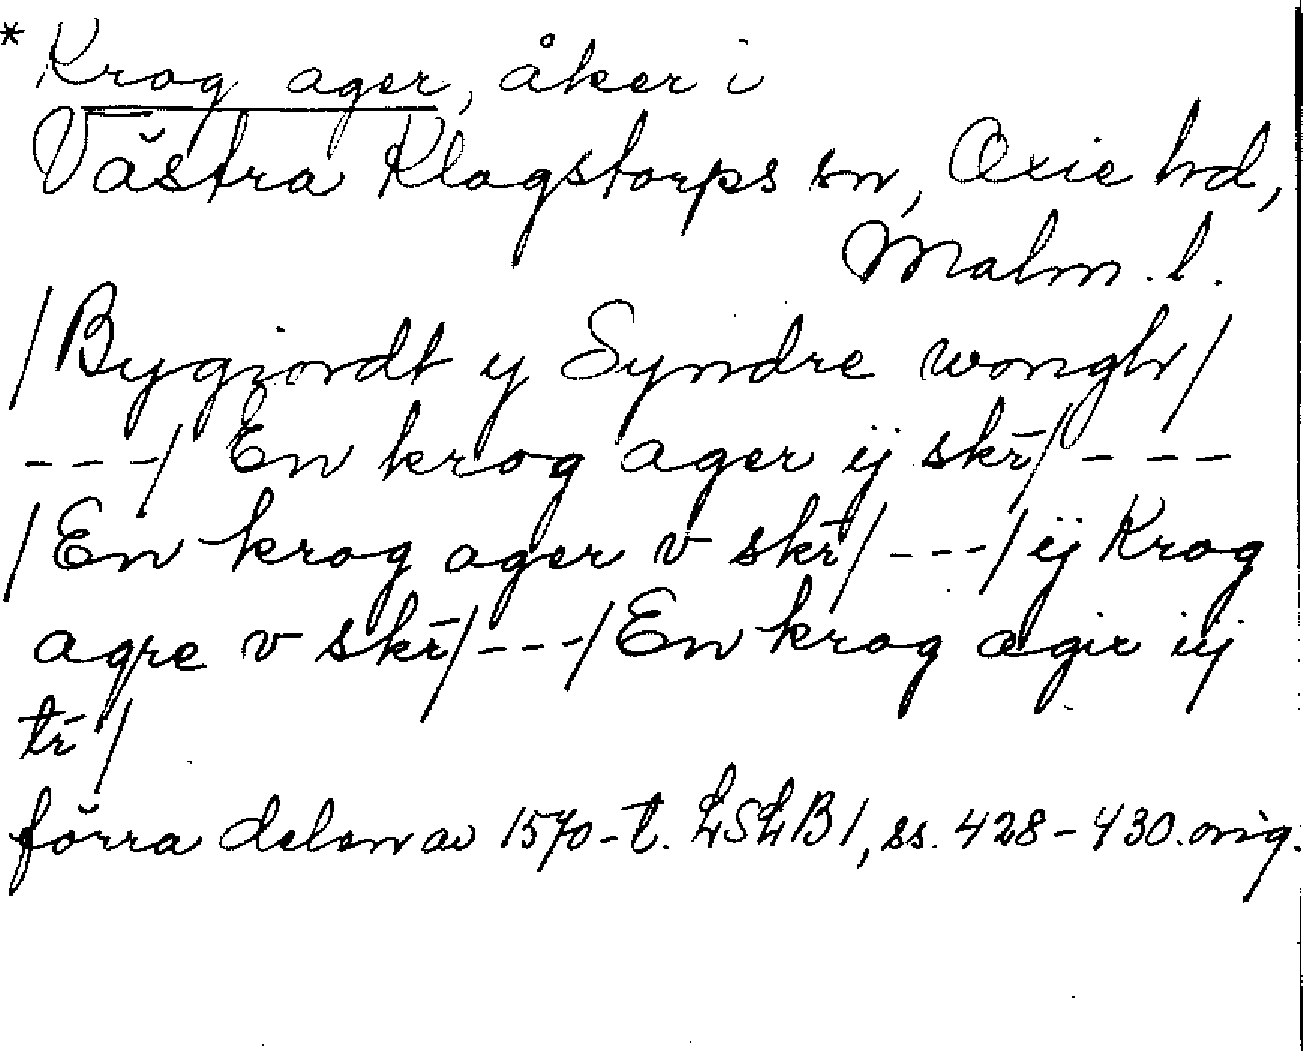 * Krog ager, åker i
Västra Klagstorps sn, Oxie hd,
Malm. l.
/Bygiordt y Syndre wongh/
---/ En krog ager ij skr̄/ ---
/En krog ager v skr̄/ ---/ ij Krog
agre v skr̄/ ---/ En krog agir iij
tr̄ /
förra delen av 1570-t. LSLB 1, ss. 428-430. orig.